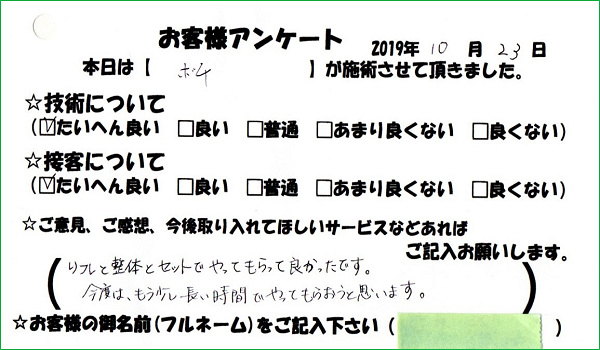 お客様アンケート 2019年 10 月 23 日
本日は【 】が施術させて頂きました。
☆技術について
(☑たいへん良い □良い □普通 □あまり良くない □良くない)
☆接客について
(☑たいへん良い □良い □普通 □あまり良くない □良くない)
☆ご意見、ご感想、今後取り入れてほしいサービスなどあれば
ご記入お願いします。
(リフレと整体とセットでやってもらって良かったです。
今度は、もう少し長い時間でやってもらおうと思います。)
☆お客様の御名前(フルネーム)をご記入下さい( )